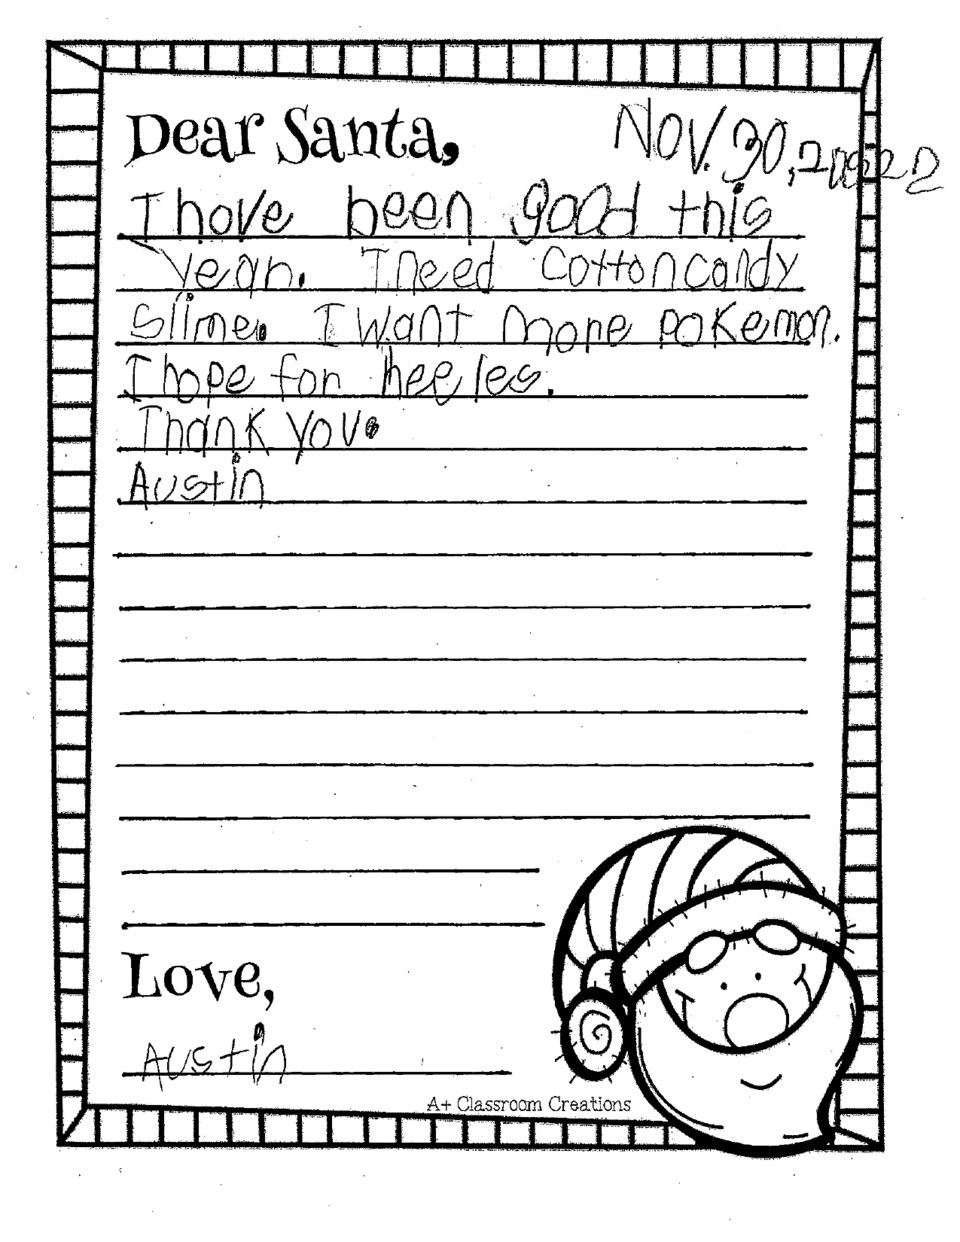 Dear Santa,
Nov. 30, 2022
I have been good this
year. I need cotton candy
slime. I want more pokemon.
I hope for heeles.
Thank you.
Austin
Love,
Austin
A+ Classroom Creations